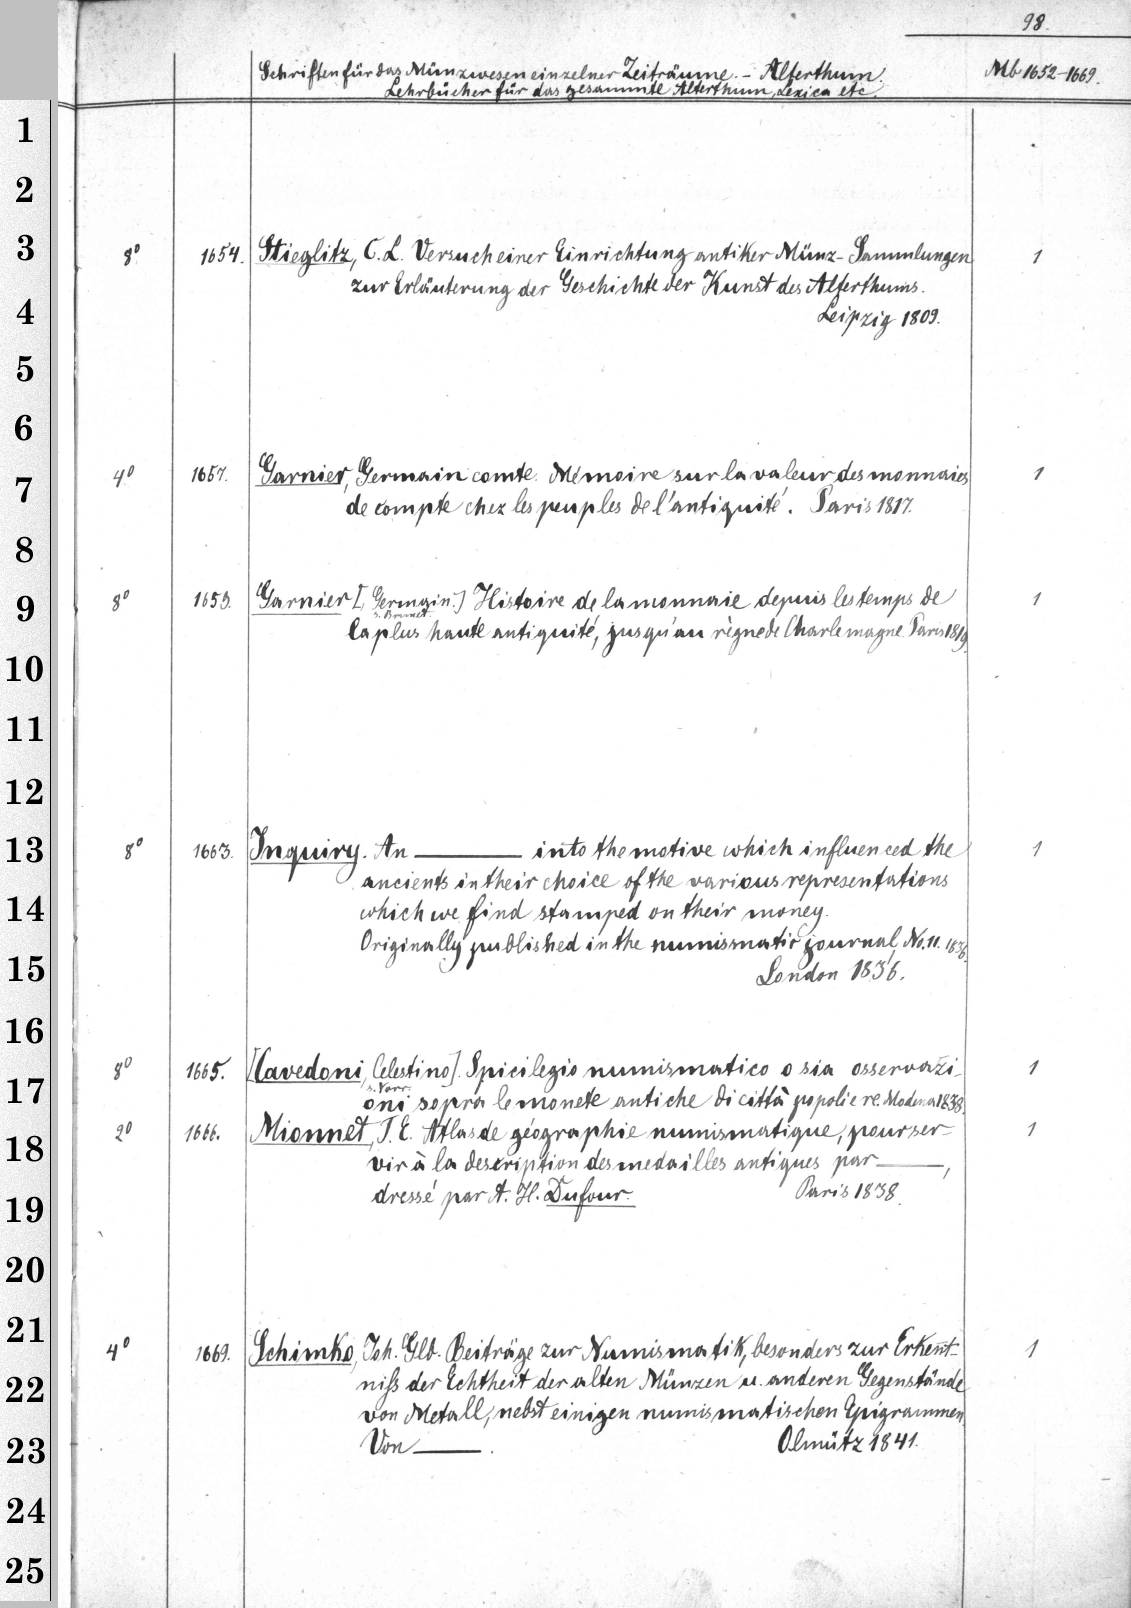 98.
Schriften für das Münzwesen einzelner Zeiträume. – Alterthum.
Mb 1652–1669.
Lehrbücher für das gesammte Alterthum, Lexica etc.
1
2
3
8° 1654. Stieglitz, C. L. Versuch einer Einrichtung antiker Münz-Sammlungen 1
zur Erläuterung der Geschichte der Kunst des Alterthums.
4
Leipzig 1809.
5
6
7
4° 1657. Garnier, Germain comte. Mémoire sur la valeur des monnaies 1
de compte chez les peuples de l'antiquité. Paris 1817.
8
9
8° 1659. Garnier [, Germain.] Histoire de la monnaie depuis les temps de 1
s. Brunet.
la plus haute antiquité, jusqu'au règne de Charlemagne. Paris 1819.
10
11
12
13
8° 1663. Inquiry. An ——— into the motive which influenced the 1
ancients in their choice of the various representations
14
which we find stamped on their money.
Originally published in the numismatic journal, No. 11. 1836.
15
London 1836.
16
8° 1665. [Cavedoni, Celestino]. Spicilegio numismatico o sia osservazi- 1
17
s. Vorr.
oni sopra le monete antiche di città popoli e re. Modena 1838.
18
2° 1666. Mionnet, T. E. Atlas de géographie numismatique, pour ser- 1
vir à la description des medailles antiques par ———,
19
dressé par A. H. Dufour. Paris 1838.
20
21
4° 1669. Schimko, Joh. Glb. Beiträge zur Numismatik, besonders zur Erkent- 1
22
niß der Echtheit der alten Münzen u. anderen Gegenstände
von Metall, nebst einigen numismatischen Epigrammen.
23
Von ———. Olmütz 1841.
24
25